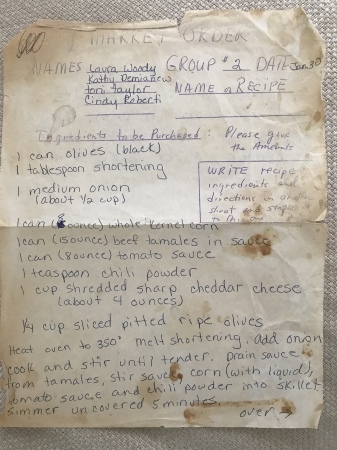 MARKET ORDER
NAMES Laura Woody GROUP #2 DATE Jan 30
Kathy Demianew
Toni Taylor NAME of RECIPE
Cindy Roberti
Ingredients to be Purchased: Please give
the Amounts
1 can olives (black)
1 tablespoon shortening
WRITE recipe
ingredients and
directions on another
sheet and staple
to this one
1 medium onion
(about 1/2 cup)
1 can (8 ounce) whole kernel corn
1 can (15 ounce) beef tamales in sauce
1 can (8 ounce) tomato sauce
1 teaspoon chili powder
1 cup shredded sharp cheddar cheese
(about 4 ounces)
1/4 cup sliced pitted ripe olives
Heat oven to 350° melt shortening. add onion
cook and stir until tender. Drain sauce
from tamales, stir sauce, corn (with liquid),
tomato sauce and chili powder into skillet
simmer uncovered 5 minutes.
over →